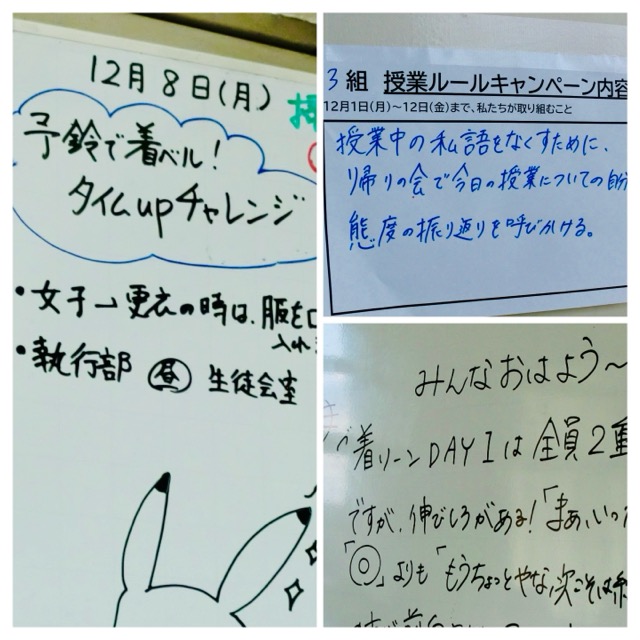 12月8日(月)
予鈴で着ベル!
タイムupチャレンジ
・女子→更衣の時は、服を
入れ
・執行部 昼 生徒会室
3組 授業ルールキャンペーン内容
12月1日(月)〜12日(金)まで、私たちが取り組むこと
授業中の私語をなくすために、
帰りの会で今日の授業についての自分
態度の振り返りを呼びかける。
みんなおはよう〜
着リーンDAY1は全員2重
ですが、伸びしろがある!「まぁ、いっ
「◎」よりも「もうちょっとやな、次こそは